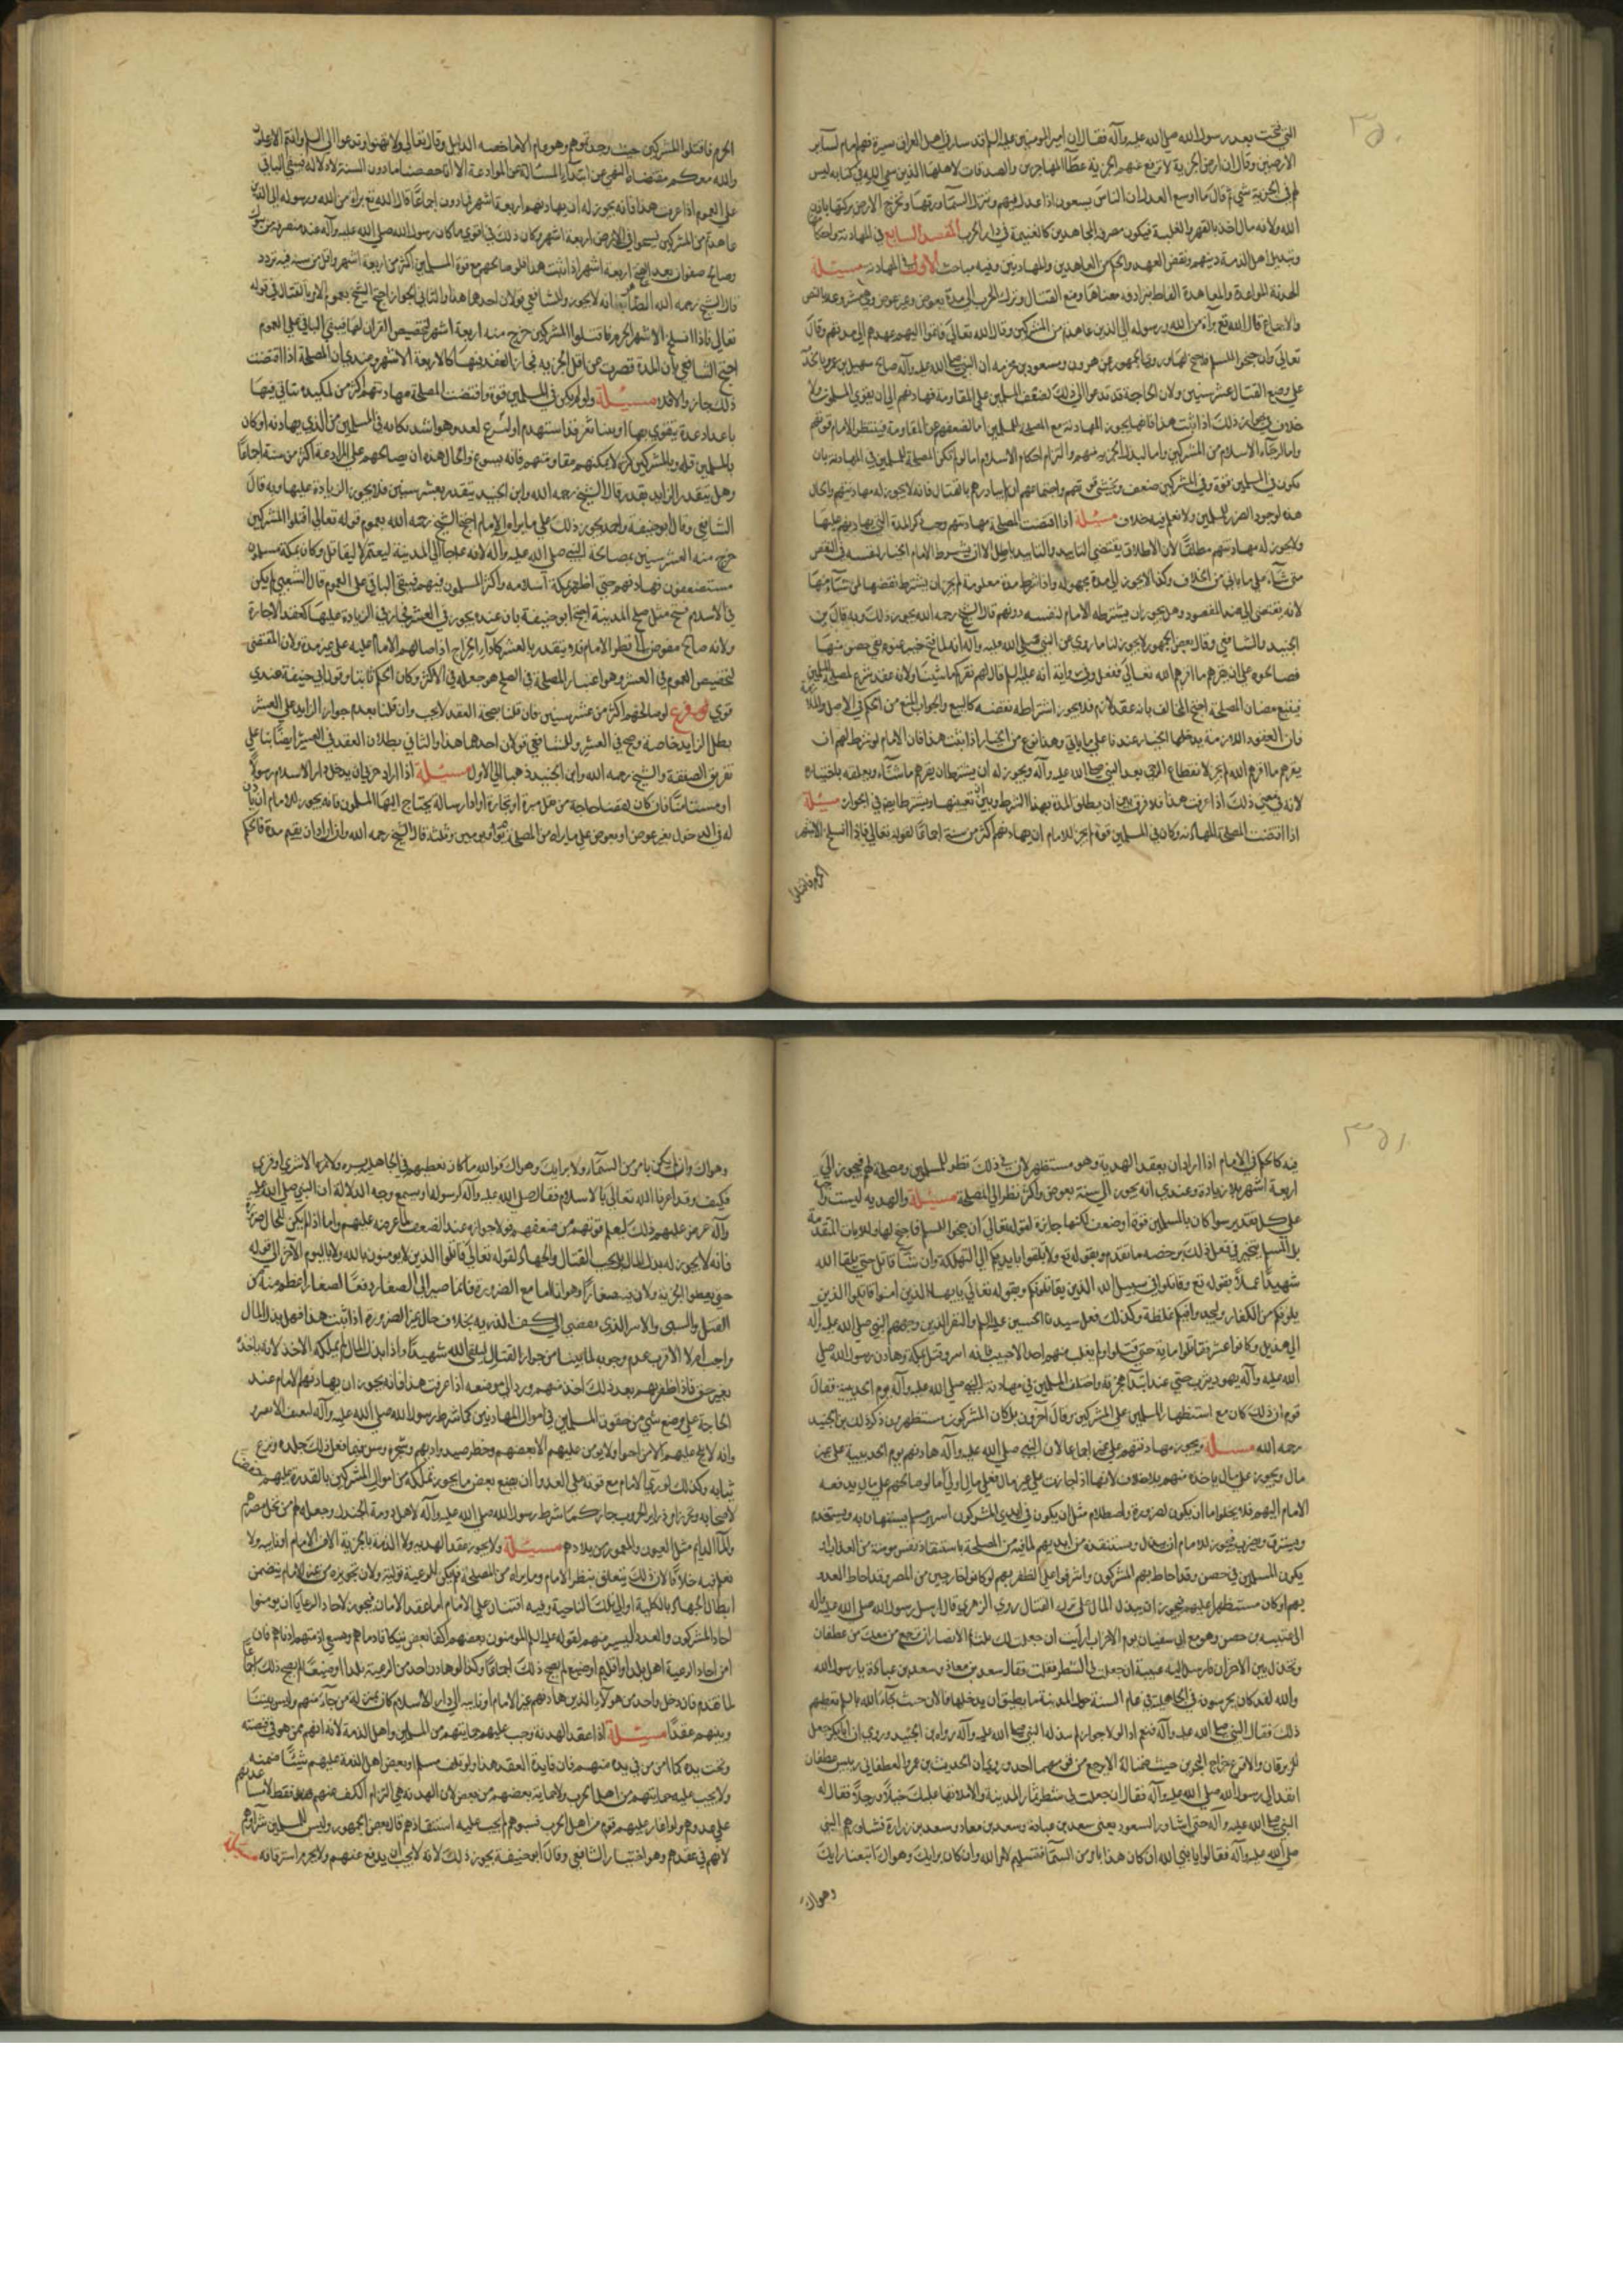 ٣٥٠
التي فتحت بعد رسول الله صلى الله عليه وآله فقال ان امير المومنين عليه السلم قد سار في اهل العراق سيرة فهم امام لساير
الارضين وقال ان ارض الجزية لا ترفع عنهم الجزية
لهم في الجزية شي ثم قال ما اوسع العدل ان الناس يسعون اذا عدل فيهم وتنزل السمآء رزقها وتخرج الارض بركتها باذن
الله ولانه مال اخذ بالقهر والغلبة فيكون مصرفه المجاهدين كالغنيمة في دار الحرب المقصد السابع في المهادنة واحكام
وتبديل اهل الذمة دينهم ونقض العهد والحكم بين المعاهدين والمهادنين وفيه مباحث الاول في المهادنة مسئلة
الهدنة والموادعة والمعاهدة الفاظ مترادفة معناها وضع القتال وترك الحرب الى مدة بعوض وغير عوض وهي مشروعة بالنص
والاجماع قال الله تع برآءة من الله ورسوله الى الذين عاهدتم من المشركين وقال الله تعالى فاتموا اليهم عهدهم الى مدتهم وقال
تعالى وان جنحوا للسلم فاجنح لها وروى الجمهور عن مروان ومسور بن مخرمة ان النبي صلى الله عليه وآله صالح سهيل بن عمرو بالحديبية
على وضع القتال عشر سنين ولان الحاجة قد تدعوا الى ذلك لضعف المسلمين على المقاومة فهادنهم الى ان يقوى المسلمون ولا
خلاف في جواز ذلك اذا ثبت هذا فانما يجوز المهادنة مع المصلحة للمسلمين اما لضعفهم عن المقاومة فينتظر الامام قوتهم
واما لرجآء الاسلام من المشركين واما لبذل الجزية منهم والتزام احكام الاسلام اما لو لم تكن المصلحة للمسلمين في المهادنة بان
يكون في المسلمين قوة وفي المشركين ضعف ويخشى قوتهم واجتماعهم ان لم يبادرهم بالقتال فانه لا يجوز له مهادنتهم والحال
هذه لوجود الضرر للمسلمين ولا نعلم فيه خلاف مسئلة اذا اقتضت المصلحة مهادنتهم وجب ذكر المدة التي يهادنهم عليها
ولا يجوز له مهادنتهم مطلقًا لان الاطلاق يقتضي التابيد والتابيد باطل الا ان يشرط الامام الخيار لنفسه في النقض
متى شآء على ما ياتي من الخلاف وكذا لا يجوز الى مدة مجهولة واذا شرط مدة معلومة لم يجز ان يشترط نقضها لمن شآء منها
لانه يفضي الى ضد المقصود وهل يجوز ان يشترطه الامام لنفسه دونهم قال الشيخ رحمه الله يجوز ذلك وبه قال ابن
الجنيد والشافعي وقال بعض الجمهور لا يجوز لنا ما روي عن النبي صلى الله عليه وآله انه لما فتح خيبر عنوة بقي حصن منها
فصالحوه على ان يقرهم ما اقرهم الله تعالى ففعل وفي رواية انه عليه السلم قال لهم نقركم ما شيئنا ولانه عقد شرع لمصلحة المسلمين
فيتبع مضان المصلحة احتج المخالف بانه عقد لازم فلا يجوز اشتراطه نقضه كالبيع والجواب المنع من الحكم في الاصل والملازمة
فان العقود اللازمة يدخلها الخيار عندنا على ما ياتي وهذا نوع من الخيار اذا ثبت هذا فان الامام لو شرط لهم ان
يقرهم ما اقرهم الله لم يجز لانقطاع الوحي بعد النبي صلى الله عليه وآله ويجوز له ان يشترط ان يقرهم ما شآء ويعلقه باختياره
لانه في معنى ذلك اذا عرفت هذا فلا فرق بين ان يطلق المدة بهذا الشرط وبين ان يعينها ويشترط ايضا في الجواز مسئلة
اذا اقتضت المصلحة المهادنة وكان في المسلمين قوة لم يجز للامام ان يهادنهم اكثر من سنة اجماعًا لقوله تعالى فاذا انسلخ الاشهر
الحرم فاقتلوا
الحرم فاقتلوا المشركين حيث وجدتموهم وهو عام الا ما خصه الدليل وقال تعالى ولا تهنوا وتدعوا الى السلم وانتم الاعلون
والله معكم
على العموم اذا عرفت هذا فانه يجوز له ان يهادنهم اربعة اشهر فما دون اجماعًا قال الله تع برآءة من الله ورسوله الى الذين
عاهدتم من المشركين فسيحوا في الارض اربعة اشهر وكان ذلك في اقوى ما كان رسول الله صلى الله عليه وآله عند منصرفه من تبوك
وصالح صفوان بعد الفتح اربعة اشهر اذا ثبت هذا فلو صالحهم مع قوة المسلمين اكثر من اربعة اشهر واقل من سنة فيه تردد
قال الشيخ رحمه الله الظاهر انه لا يجوز وللشافعي قولان احدهما هذا والثاني الجواز احتج الشيخ بعموم الامر بالقتال في قوله
تعالى فاذا انسلخ الاشهر الحرم فاقتلوا المشركين خرج منه اربعة اشهر لتخصيص القران لها فيبقى الباقي على العموم
احتج الشافعي بان المدة قصرت عن اقل الجزية فجاز العقد فيها كالاربعة الاشهر وعندي ان المصلحة اذا اقتضت
ذلك جاز والا فلا مسئلة ولو لم يكن في المسلمين قوة واقتضت المصلحة مهادنتهم اكثر من
باعداد عدة يتقوى بها
بالمسلمين قلة وبالمشركين كثرة لا يمكنهم مقاومتهم فانه يسوغ والحال هذه ان يصالحهم على الموادعة اكثر من سنة اجماعًا
وهل يتقدر الزايد بقدر قال الشيخ رحمه الله وابن الجنيد يتقدر بعشر سنين فلا يجوز الزيادة عليها وبه قال
الشافعي وقال ابو حنيفة واحمد يجوز ذلك على ما يراه الامام احتج الشيخ رحمه الله بعموم قوله تعالى اقتلوا المشركين
خرج منه العشر سنين بمصالحة النبي صلى الله عليه وآله
مستضعفون فهادنهم حتى اظهر بمكة اسلامه واكثر المسلمون فيهم فيبقى الباقي على العموم قال الشعبي لم يكن
في الاسلام فتح مثل صلح المدينة احتج ابو حنيفة بان عنده يجوز في العشر فجازت في الزيادة عليها كعقد الاجارة
ولانه صالح
لتخصيص العموم في العشر وهو اعتبار المصلحة في الصلح هو جعله في الاكثر وكان الحكم ثابتا وقول ابي حنيفة عندي
قوي فرع لو صالحهم اكثر من عشر سنين فان قلنا بصحة العقد لا بحث وان قلنا بعدم جواز الزايد على العشر
بطل الزايد خاصة وصح في العشر وللشافعي قولان احدهما هذا والثاني بطلان العقد في العشر ايضًا بنا على
تفريق الصفقة والشيخ رحمه الله وابن الجنيد ذهبا الى الاول مسئلة اذا اراد حربي ان يدخل دار الاسلام رسولًا
او مستامنًا فان كان لقضا حاجة من نقل ميرة او تجارة او ادا رسالة يحتاج اليها المسلمون فانه يجوز للامام ان ياذن
له في الدخول بغير عوض او بعوض على ما يراه من المصلحة يومًا ويومين وثلثة قال الشيخ رحمه الله واذا اراد ان يقيم مدة فالحكم
٣٥١
فيه كالحكم في الامام اذا اراد ان يعقد الهدنة وهو مستظهر لان في ذلك نظر للمسلمين ومصلحة لهم فيجوز الى
اربعة اشهر بلا زيادة وعندي انه يجوز الى سنة بعوض واكثر نظر الى المصلحة مسئلة والهدنة ليست واجبة
على كل تقدير سوا كان بالمسلمين قوة او ضعف لكنها جايزة لقوله تعالى وان جنحوا للسلم فاجنح لها وللايات المتقدمة
بل المسلم يتخير في فعل ذلك برخصه ما تقدم وبقوله تع ولا تلقوا بايديكم الى التهلكة وان شآء قاتل حتى يلقا الله
شهيدًا عملًا بقوله تع وقاتلوا في سبيل الله الذين يقاتلونكم وبقوله تعالى يا ايها الذين امنوا قاتلوا الذين
يلونكم من الكفار وليجدوا فيكم غلظة وكذلك فعل سيدنا الحسين عليه السلم والنفر الذين وجههم النبي صلى الله عليه وآله
الى هذيل وكانوا عشرة فقاتلوا ماية حتى قتلوا ولم يفلت منهم احد الا خبيب فانه اسر وقتل بمكة وهادن رسول الله صلى
الله عليه وآله يهود يثرب حتى
قوم ان ذلك كان مع استظهار المسلمين على المشركين وقال آخرون بل كان المشركون مستظهرين ذكر ذلك ابن الجنيد
رحمه الله مسئلة ويجوز مهادنتهم على غير مال اجماعا لان النبي صلى الله عليه وآله هادنهم يوم الحديبية على غير
مال ويجوز على مال ياخذه منهم بلا خلاف لانها اذا جازت على غير مال فعلى مال اولى اما لو صالحهم على مال يدفعه
الامام اليهم فلا يخلو اما ان يكون لضرورة او اصطلام مثل ان يكون في ايدي المشركون اسير مسلم يستهان به ويستخدم
ويسترق ويضرب فيجوز للامام ان يبذل ويستنقذه من ايديهم لما فيه من المصلحة باستنقاذ نفس مومنة من العذاب او
يكون المسلمين في حصن وقد احاط بهم المشركون واشرفوا على الظفر بهم او كانوا خارجين من المصر وقد احاط العدو
بهم او كان مستظهرا عليهم فيجوز ان يبذل المال على ترك القتال روى الزهري قال ارسل رسول الله صلى الله عليه وآله
الى عيينة بن حصن وهو مع ابي سفيان يوم الاحزاب ارايت ان جعلت لك ثلث ثمار الانصار اترجع بمن معك من غطفان
وتخذل بين الاحزاب فارسل اليه عيينة ان جعلت لي الشطر فعلت فقال سعد بن معاذ وسعد بن عبادة يا رسول الله
والله لقد كان يجر
ذلك فقال النبي صلى الله عليه وآله فنعم اذا
للزبرقان والاقرع خراج البحرين
انفذ الى رسول الله صلى الله عليه وآله فقال ان جعلت لي شطر ثمار المدينة والا ملاتها عليك خيلًا ورجلًا فقال له
النبي صلى الله عليه وآله حتى اشاور السعود يعني سعد بن عبادة وسعد بن معاذ وسعد بن زرارة فشاورهم النبي
صلى الله عليه وآله فقالوا يا نبي الله ان كان هذا بامر من السمآء فتسليم لامر الله وان كان برايك وهواك اتبعنا رايك
وهواك
وهواك وان لم يكن بامر من السمآء ولا برايك وهواك فوالله ما كان نعطيهم في الجاهلية بسرة ولا تمرة الا شرى او قرى
فكيف وقد اعزنا الله تعالى بالاسلام فقال صلى الله عليه وآله لرسوله اوتسمع وجه الدلالة ان النبي صلى الله عليه
وآله عرض عليهم ذلك ليعلم قوتهم من ضعفهم فلولا جوازه عند الضعف لما عرضه عليهم واما اذا لم يكن الحال ضرورة
فانه لا يجوز له بذل المال بل يجب القتال والجهاد لقوله تعالى قاتلوا الذين لا يومنون بالله ولا باليوم الآخر الى قوله
حتى يعطوا الجزية ولان فيه صغارًا وهوانا اما مع الضرورة فانما صير الى الصغار دفعًا لصغار اعظم منه من
القتل والسبي والاسر الذي يفضي الى كفر الذرية بخلاف حال غير الضرورة اذا ثبت هذا فهل بذل المال
واجب ام لا الاقرب عدم وجوبه لما بينا من جواز القتال ليلقى الله شهيدًا واذا بذل المال لم يملكه الاخذ لانه ياخذه
بغير حق فاذا ظفر بهم بعد ذلك اخذ منهم ورد الى موضعه اذا عرفت هذا فانه يجوز ان يهادنهم الامام عند
الحاجة على وضع شي من حقوق المسلمين في اموال المهادنين كما شرط رسول الله صلى الله عليه وآله
ثيابه وكذلك لو راى الامام مع قوته على العدو ان يضع بعض ما يجوز تملكه من اموال المشركين بالقدرة عليهم
لاصحابه
والمآء الدايم مثل العيون والمعمور من بلادهم مسئلة ولا يجوز عقد الهدنة ولا الذمة بالجزية الا من الامام او نايبه ولا
نعلم فيه خلافًا لان ذلك يتعلق بنظر الامام وما يراه من المصلحة فلم يكن للرعية توليته ولان تجويزه من غير الامام يتضمن
ابطال الجهاد بالكلية او الى تلك الناحية وفيه افتئات على الامام اما عقد الامان فيجوز لاحاد الرعايا ان يومنوا
احاد المشركون والعدد اليسير منهم لقوله عليه السلم المومنون بعضهم اكفا بعض تتكافا دماهم ويسعى بذمتهم ادناهم فان
امن احاد الرعية اهل بلد او اقليم او صقع لم يصح ذلك اجماعًا وكذا لو هادن احد من الرعية بلدا او صقعًا لم يصح ذلك اجماعًا
لما تقدم فان دخل واحد من هولآء الذين هادنهم غير الامام او نايبه الى دار الاسلام كان بمنزلة من جآء منهم وليس بيننا
وبينهم عقدًا مسئلة اذا عقد الهدنة وجب عليهم حمايتهم من المسلمين واهل الذمة لانه امنهم ممن هو في قبضته
وتحت يده كما امن من في يده منهم فان فايدة العقد هذا ولو تلف مسلم او بعض اهل الذمة عليهم شيئًا ضمنه
ولا يجب عليه حمايتهم من اهل الحرب ولا حماية بعضهم من بعض لان الهدنة هي التزام الكف عنهم فقط لا مساعدتهم
على عدوهم ولو اغار عليهم قوم من اهل الحرب فسبوهم لم يجب عليه استنقاذهم قال بعض الجمهور وليس للمسلمين شراوهم
لانهم في عقدهم وهو اختيار الشافعي وقال ابو حنيفة يجوز ذلك لانه لا يجب ان يدفع عنهم ولا يحرم استرقاقه مسئلة